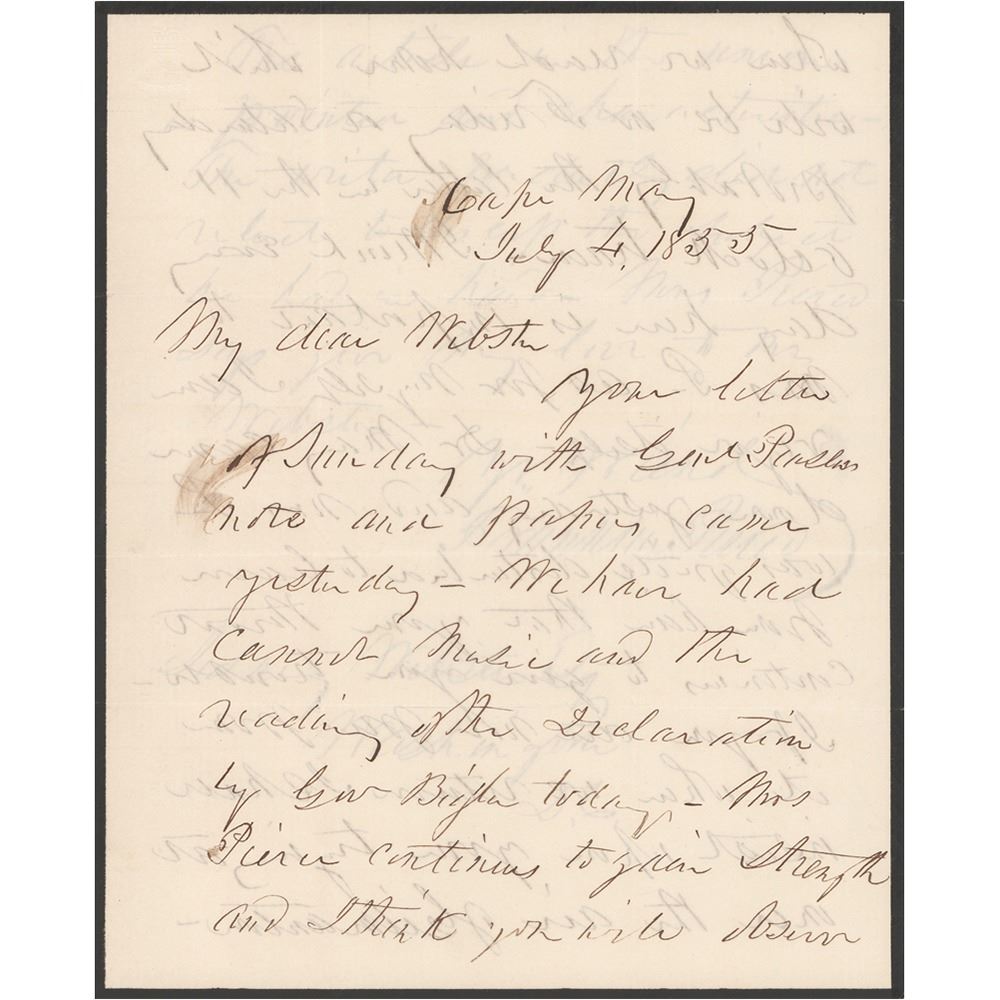 Cape May
July 4, 1855
My dear Webster
your letter
of Sunday with Genl
note and papers came
yesterday - We have had
Cannon Music and the
reading of the Declaration
by Gov Bigler today, - Mrs
Pierce continues to gain strength
and I think you will observe